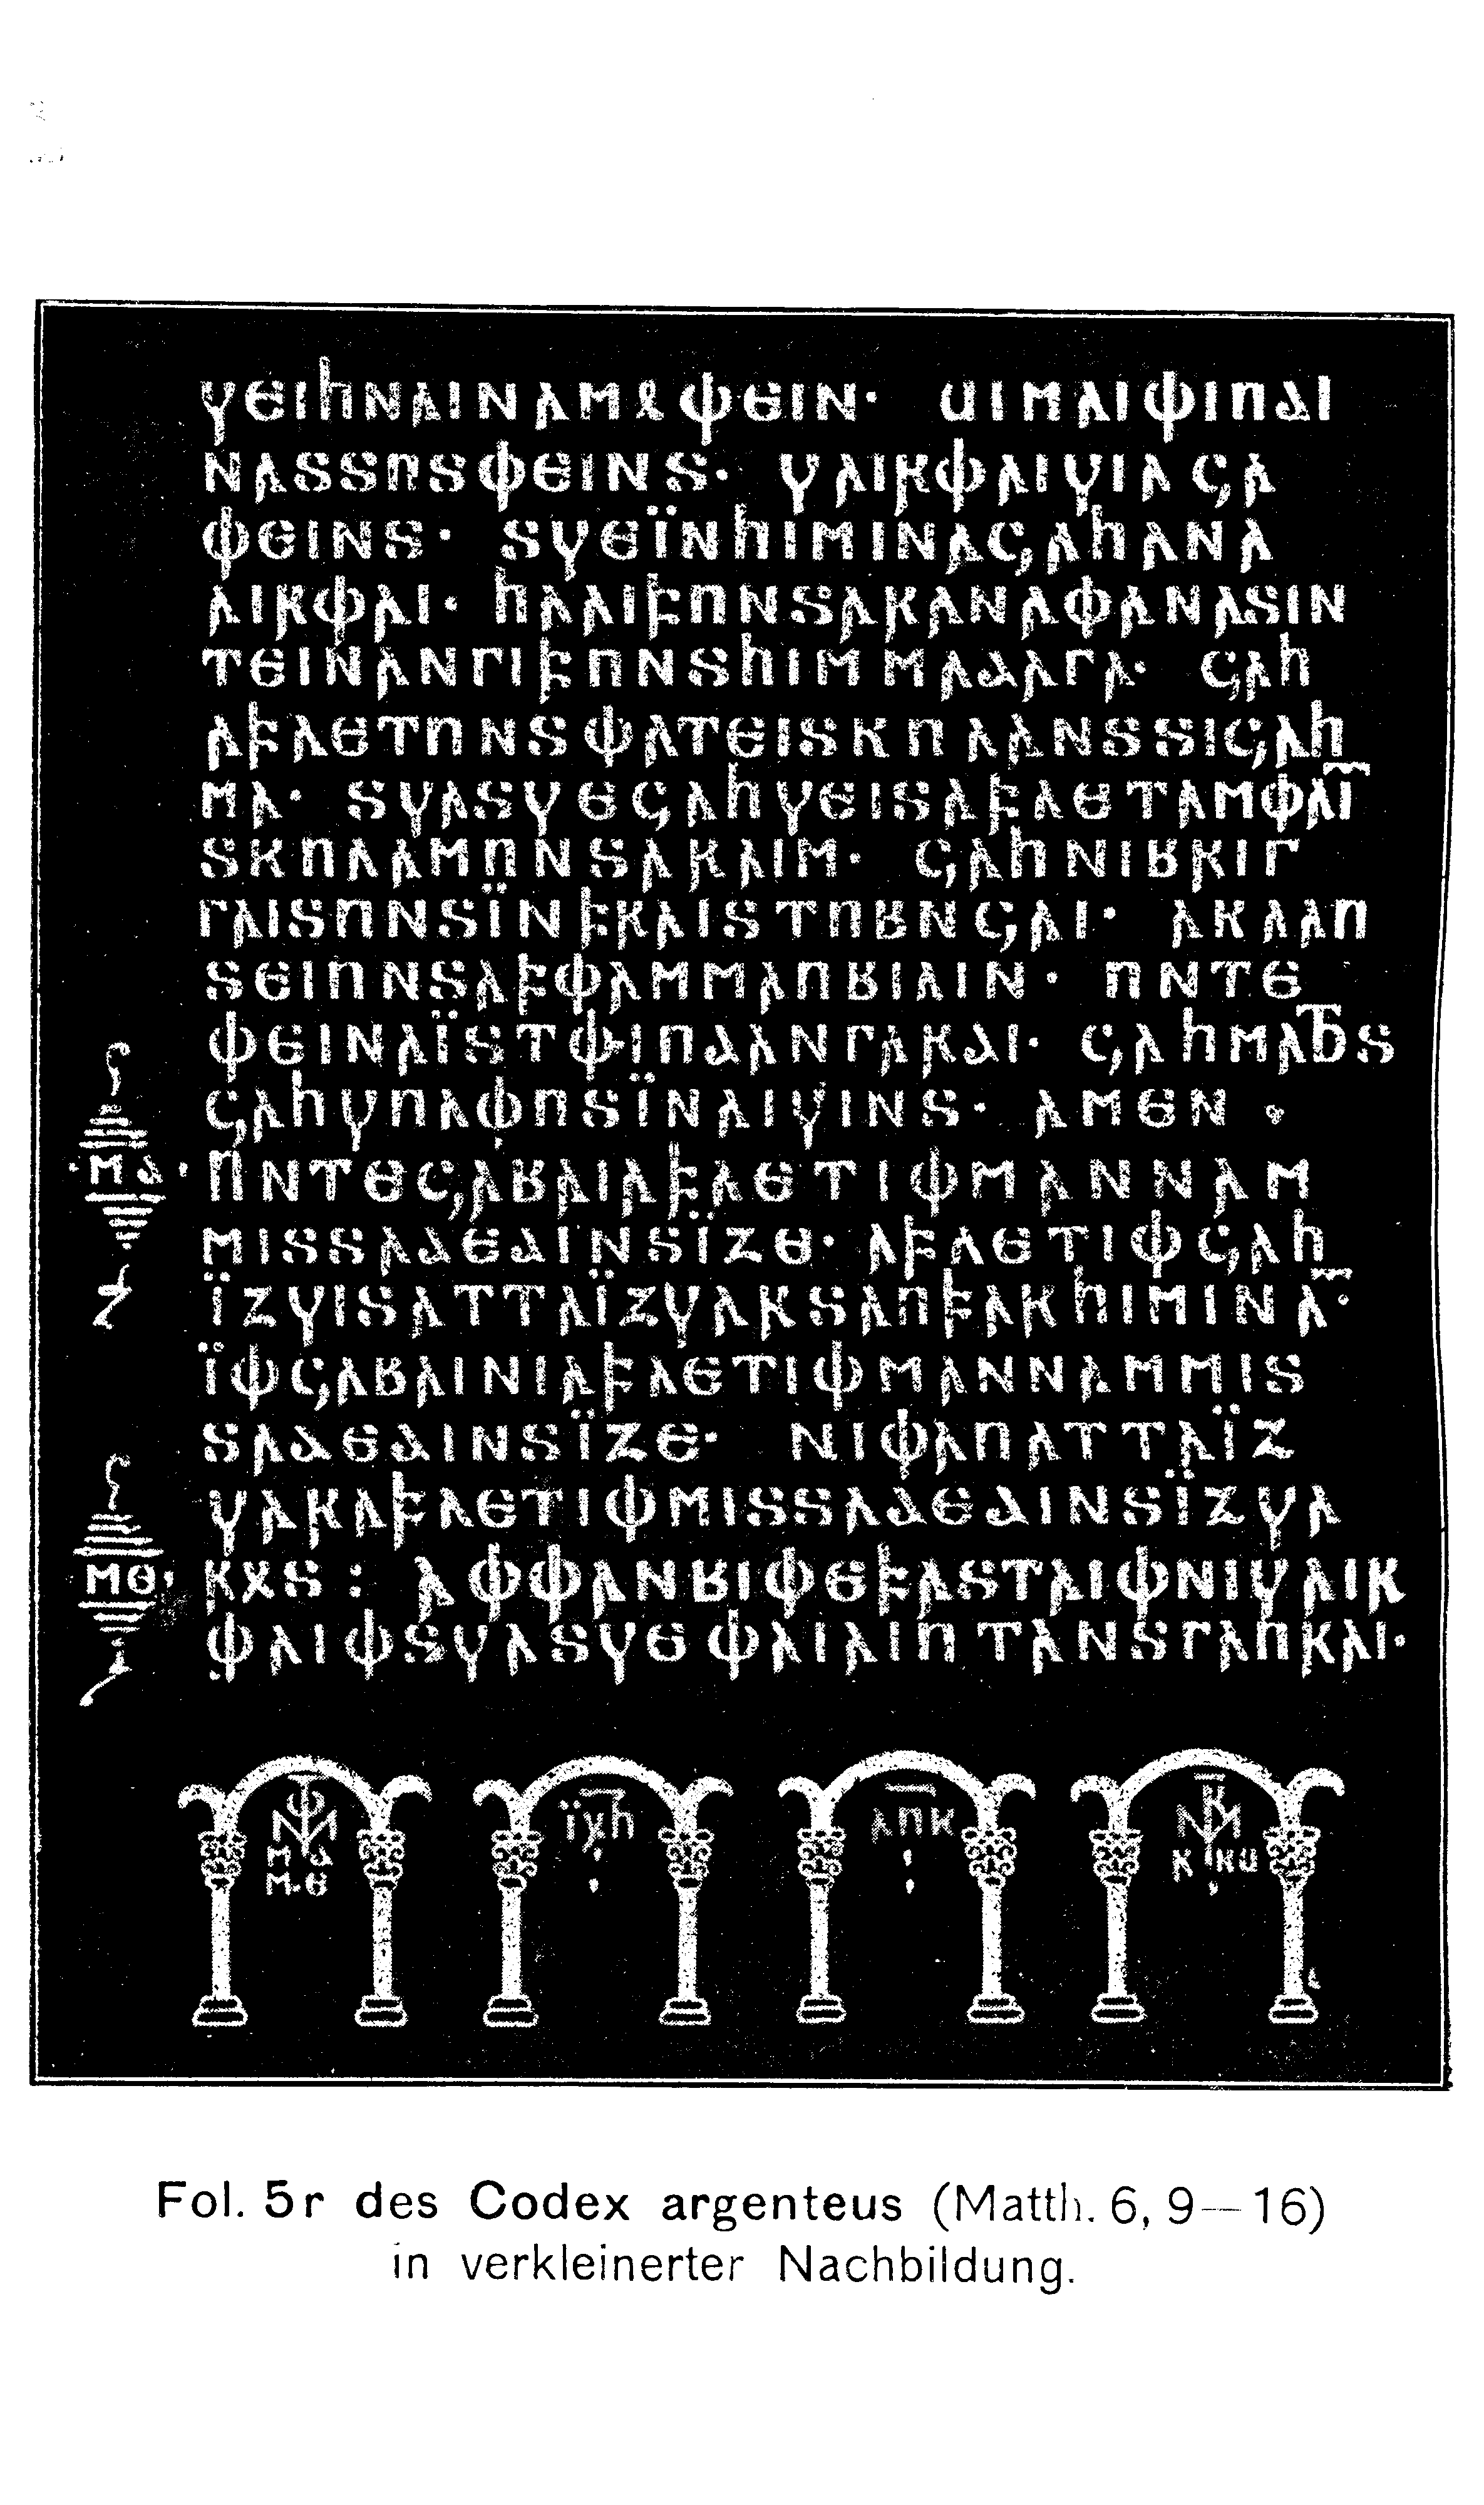 𐍅𐌴𐌹𐌷𐌽𐌰𐌹𐌽𐌰𐌼𐍉𐌸𐌴𐌹𐌽· 𐌵𐌹𐌼𐌰𐌹𐌸𐌹𐌿𐌳𐌹
𐌽𐌰𐍃𐍃𐌿𐍃𐌸𐌴𐌹𐌽𐍃· 𐍅𐌰𐌹𐍂𐌸𐌰𐌹𐍅𐌹𐌻𐌾𐌰
𐌸𐌴𐌹𐌽𐍃· 𐍃𐍅𐌴𐌹̈𐌽𐌷𐌹𐌼𐌹𐌽𐌰𐌾𐌰𐌷𐌰𐌽𐌰
𐌰𐌹𐍂𐌸𐌰𐌹· 𐌷𐌻𐌰𐌹𐍆𐌿𐌽𐍃𐌰𐍂𐌰𐌽𐌰𐌸𐌰𐌽𐌰𐍃𐌹𐌽
𐍄𐌴𐌹𐌽𐌰𐌽𐌲𐌹𐍆𐌿𐌽𐍃𐌷𐌹𐌼𐌼𐌰𐌳𐌰𐌲𐌰· 𐌾𐌰𐌷
𐌰𐍆𐌻𐌴𐍄𐌿𐌽𐍃𐌸𐌰𐍄𐌴𐌹𐍃𐌺𐌿𐌻𐌰𐌽𐍃𐍃𐌹𐌾𐌰𐌹
𐌼𐌰· 𐍃𐍅𐌰𐍃𐍅𐌴𐌾𐌰𐌷𐍅𐌴𐌹𐍃𐌰𐍆𐌻𐌴𐍄𐌰𐌼𐌸𐌰𐌹
𐍃𐌺𐌿𐌻𐌰𐌼𐌿𐌽𐍃𐌰𐍂𐌰𐌹𐌼· 𐌾𐌰𐌷𐌽𐌹𐌱𐍂𐌹𐌲
𐌲𐌰𐌹𐍃𐌿𐌽𐍃𐌹̈𐌽𐍆𐍂𐌰𐌹𐍃𐍄𐌿𐌱𐌽𐌾𐌰𐌹· 𐌰𐌺𐌻𐌰𐌿
𐍃𐌴𐌹𐌿𐌽𐍃𐌰𐍆𐌸𐌰𐌼𐌼𐌰𐌿𐌱𐌹𐌻𐌹𐌽· 𐌿𐌽𐍄𐌴
𐌸𐌴𐌹𐌽𐌰𐌹̈𐍃𐍄𐌸𐌹𐌿𐌳𐌰𐌽𐌲𐌰𐍂𐌳𐌹· 𐌾𐌰𐌷𐌼𐌰𐌷𐍄𐍃
𐌾𐌰𐌷𐍅𐌿𐌻𐌸𐌿𐍃𐌹̈𐌽𐌰𐌹𐍅𐌹𐌽𐍃· 𐌰𐌼𐌴𐌽
·𐌼𐌳· 𐌿𐌽𐍄𐌴𐌾𐌰𐌱𐌰𐌹𐌰𐍆𐌻𐌴𐍄𐌹𐌸𐌼𐌰𐌽𐌽𐌰𐌼
𐌼𐌹𐍃𐍃𐌰𐌳𐌴𐌳𐌹𐌽𐍃𐌹̈𐌶𐌴· 𐌰𐍆𐌻𐌴𐍄𐌹𐌸𐌾𐌰𐌷
𐌹̈𐌶𐍅𐌹𐍃𐌰𐍄𐍄𐌰𐌹̈𐌶𐍅𐌰𐍂𐍃𐌰𐌿𐍆𐌰𐍂𐌷𐌹𐌼𐌹𐌽𐌰̅·
𐌹̈𐌸𐌾𐌰𐌱𐌰𐌹𐌽𐌹𐌰𐍆𐌻𐌴𐍄𐌹𐌸𐌼𐌰𐌽𐌽𐌰𐌼𐌼𐌹𐍃
𐍃𐌰𐌳𐌴𐌳𐌹𐌽𐍃𐌹̈𐌶𐌴· 𐌽𐌹𐌸𐌰𐌿𐌰𐍄𐍄𐌰𐌹̈𐌶
𐍅𐌰𐍂𐌰𐍆𐌻𐌴𐍄𐌹𐌸𐌼𐌹𐍃𐍃𐌰𐌳𐌴𐌳𐌹𐌽𐍃𐌹̈𐌶𐍅𐌰
𐌼𐌴· 𐍂𐍉𐍃: 𐌰𐌸𐌸𐌰𐌽𐌱𐌹𐌸𐌴𐍆𐌰𐍃𐍄𐌰𐌹𐌸𐌽𐌹𐍅𐌰𐌹𐍂
𐌸𐌰𐌹𐌸𐍃𐍅𐌰𐍃𐍅𐌴𐌸𐌰𐌹𐌻𐌹𐌿𐍄𐌰𐌽𐍃𐌲𐌰𐌿𐍂𐌰𐌹·
𐌻𐌿𐌺
𐌼𐌳
𐌼·𐌴
Fol. 5r des Codex argenteus (Matth. 6, 9—16)
in verkleinerter Nachbildung.